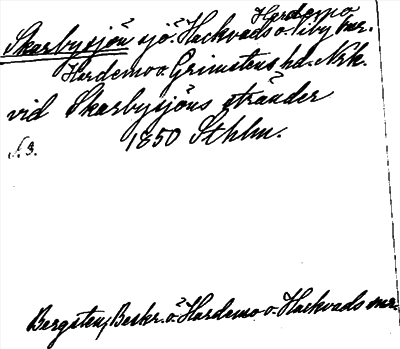 Hardemo
Skarbysjön sjö i Hackvads o. Viby snr.
Hardemo o. Grimstens hd. Nrk.
vid Skarbysjöns stränder
1850 Sthlm.
S. 3.
Bergsten, Beskr. ö. Hardemo o. Hackvads snr.